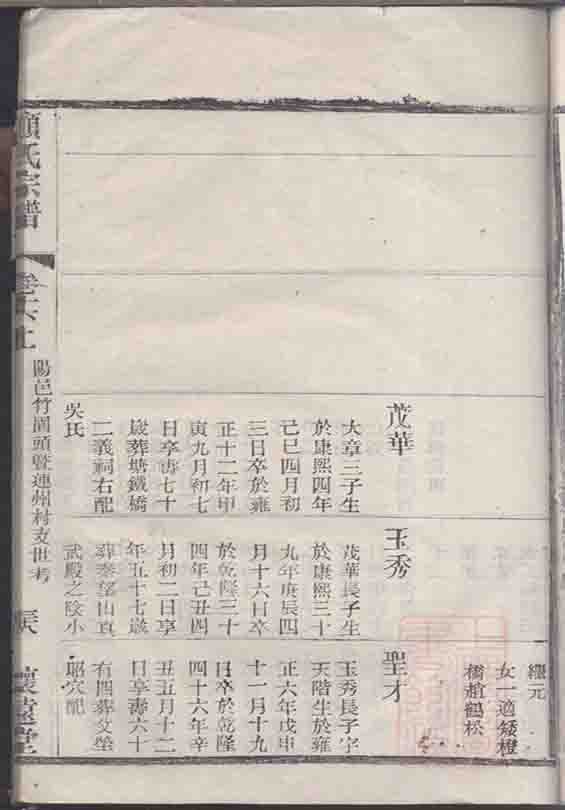 繼元
女一適矮橙
橋趙鶴松
茂華
大章三子生
於康熙四年
己巳四月初
三日卒於雍
正十二年甲
寅九月初七
日享壽七十
歲葬塘鐵橋
二義祠右配
吳氏
玉秀
茂華長子生
於康熙三十
九年庚辰四
月十六日卒
於乾隆三十
四年己丑四
月初二日享
年五十七歲
葬秦望山真
武殿之陰小
聖才
玉秀長子字
天階生於雍
正六年戊申
十一月十九
日卒於乾隆
四十六年辛
丑五月十二
日享壽六十
有四葬父塋
昭穴配
顧氏宗譜
卷六上
陽邑竹園頭暨連州村支世考
懷遠堂